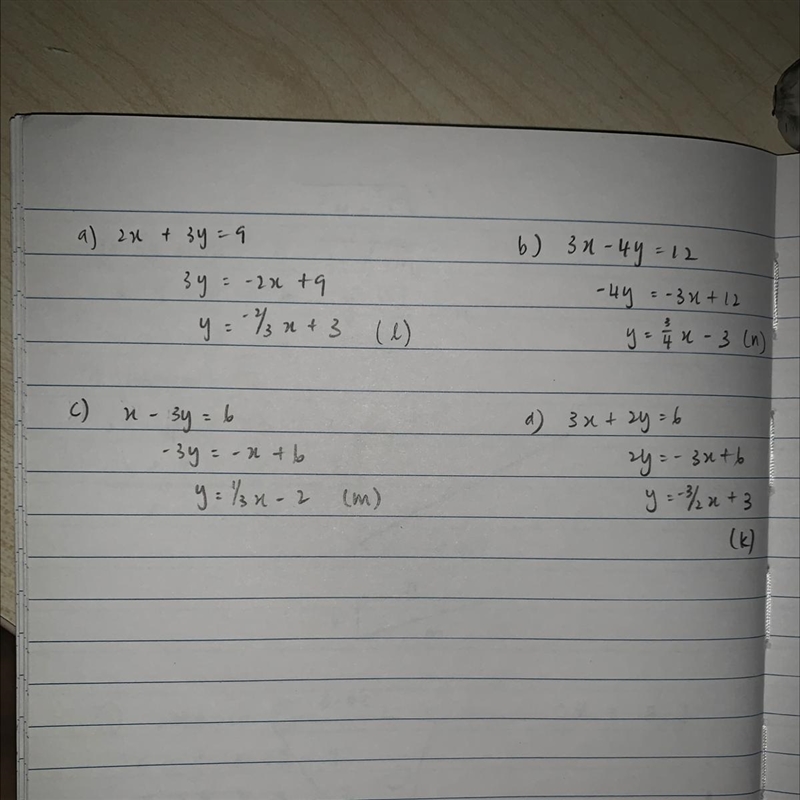 a) 2x + 3y = 9
3y = -2x + 9
y = -2/3 x + 3 (l)
b) 3x - 4y = 12
-4y = -3x + 12
y = 3/4 x - 3 (n)
c) x - 3y = 6
-3y = -x + 6
y = 1/3 x - 2 (m)
d) 3x + 2y = 6
2y = -3x + 6
y = -3/2 x + 3
(k)